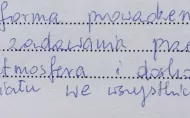 forma prowadzen
zadawania prac
tmosfera i dosko
iału we wszystkic